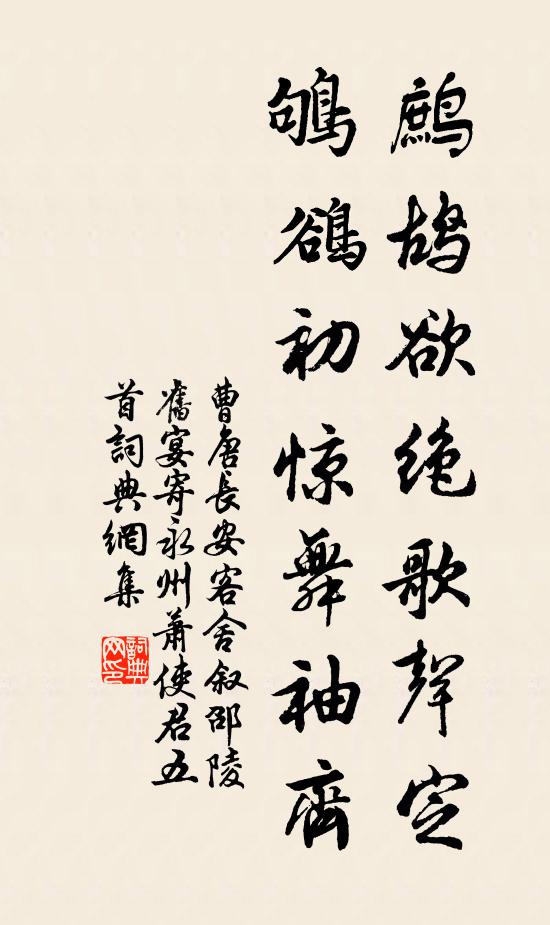 鷓鴣欲絕歌聲定
鴝鵒初惊舞袖齊
曹唐長安客舍叙邵陵
舊宴寄永州蕭使君五
首詞典網集
詞典网印